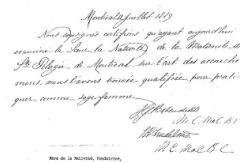 Montréal 12 juillet 1849
Nous soussignés certifions qu'ayant aujourd'hui
examiné la Sœur la Nativité de la Maternité de
Ste Pélagie de Montréal sur l'art des accouche-
ment, nous l'avons trouvée qualifiée pour prati-
quer comme sage-femme.
M. C. M. & C. B. C.
M. C. M. & C. B. C.
Mère de la Nativité, Fondatrice,